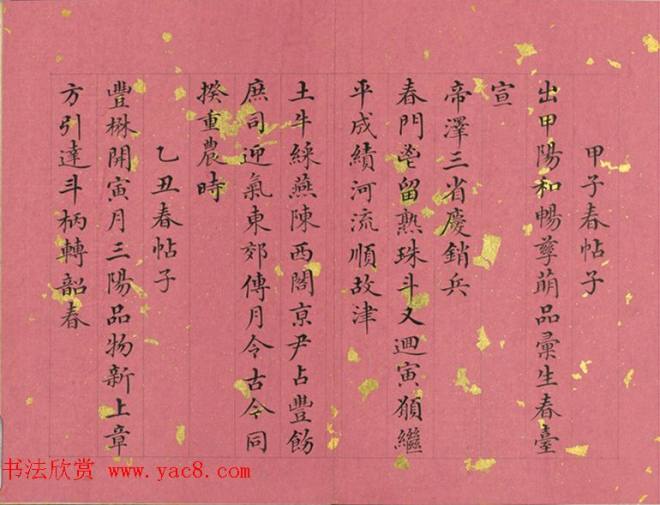 甲子春帖子
出甲陽和暢孳萌品彙生春臺
宣
帝澤三省慶銷兵
春門留熟珠斗又迴寅願繼
平成績河流順故津
土牛綵燕陳西閣亰尹占豐飭
庶司迎氣東郊傳月令古今同
揆重農時
乙丑春帖子
豐楙開寅月三陽品物新上章
方引達斗柄轉韶春
书法欣赏 www.yac8.com